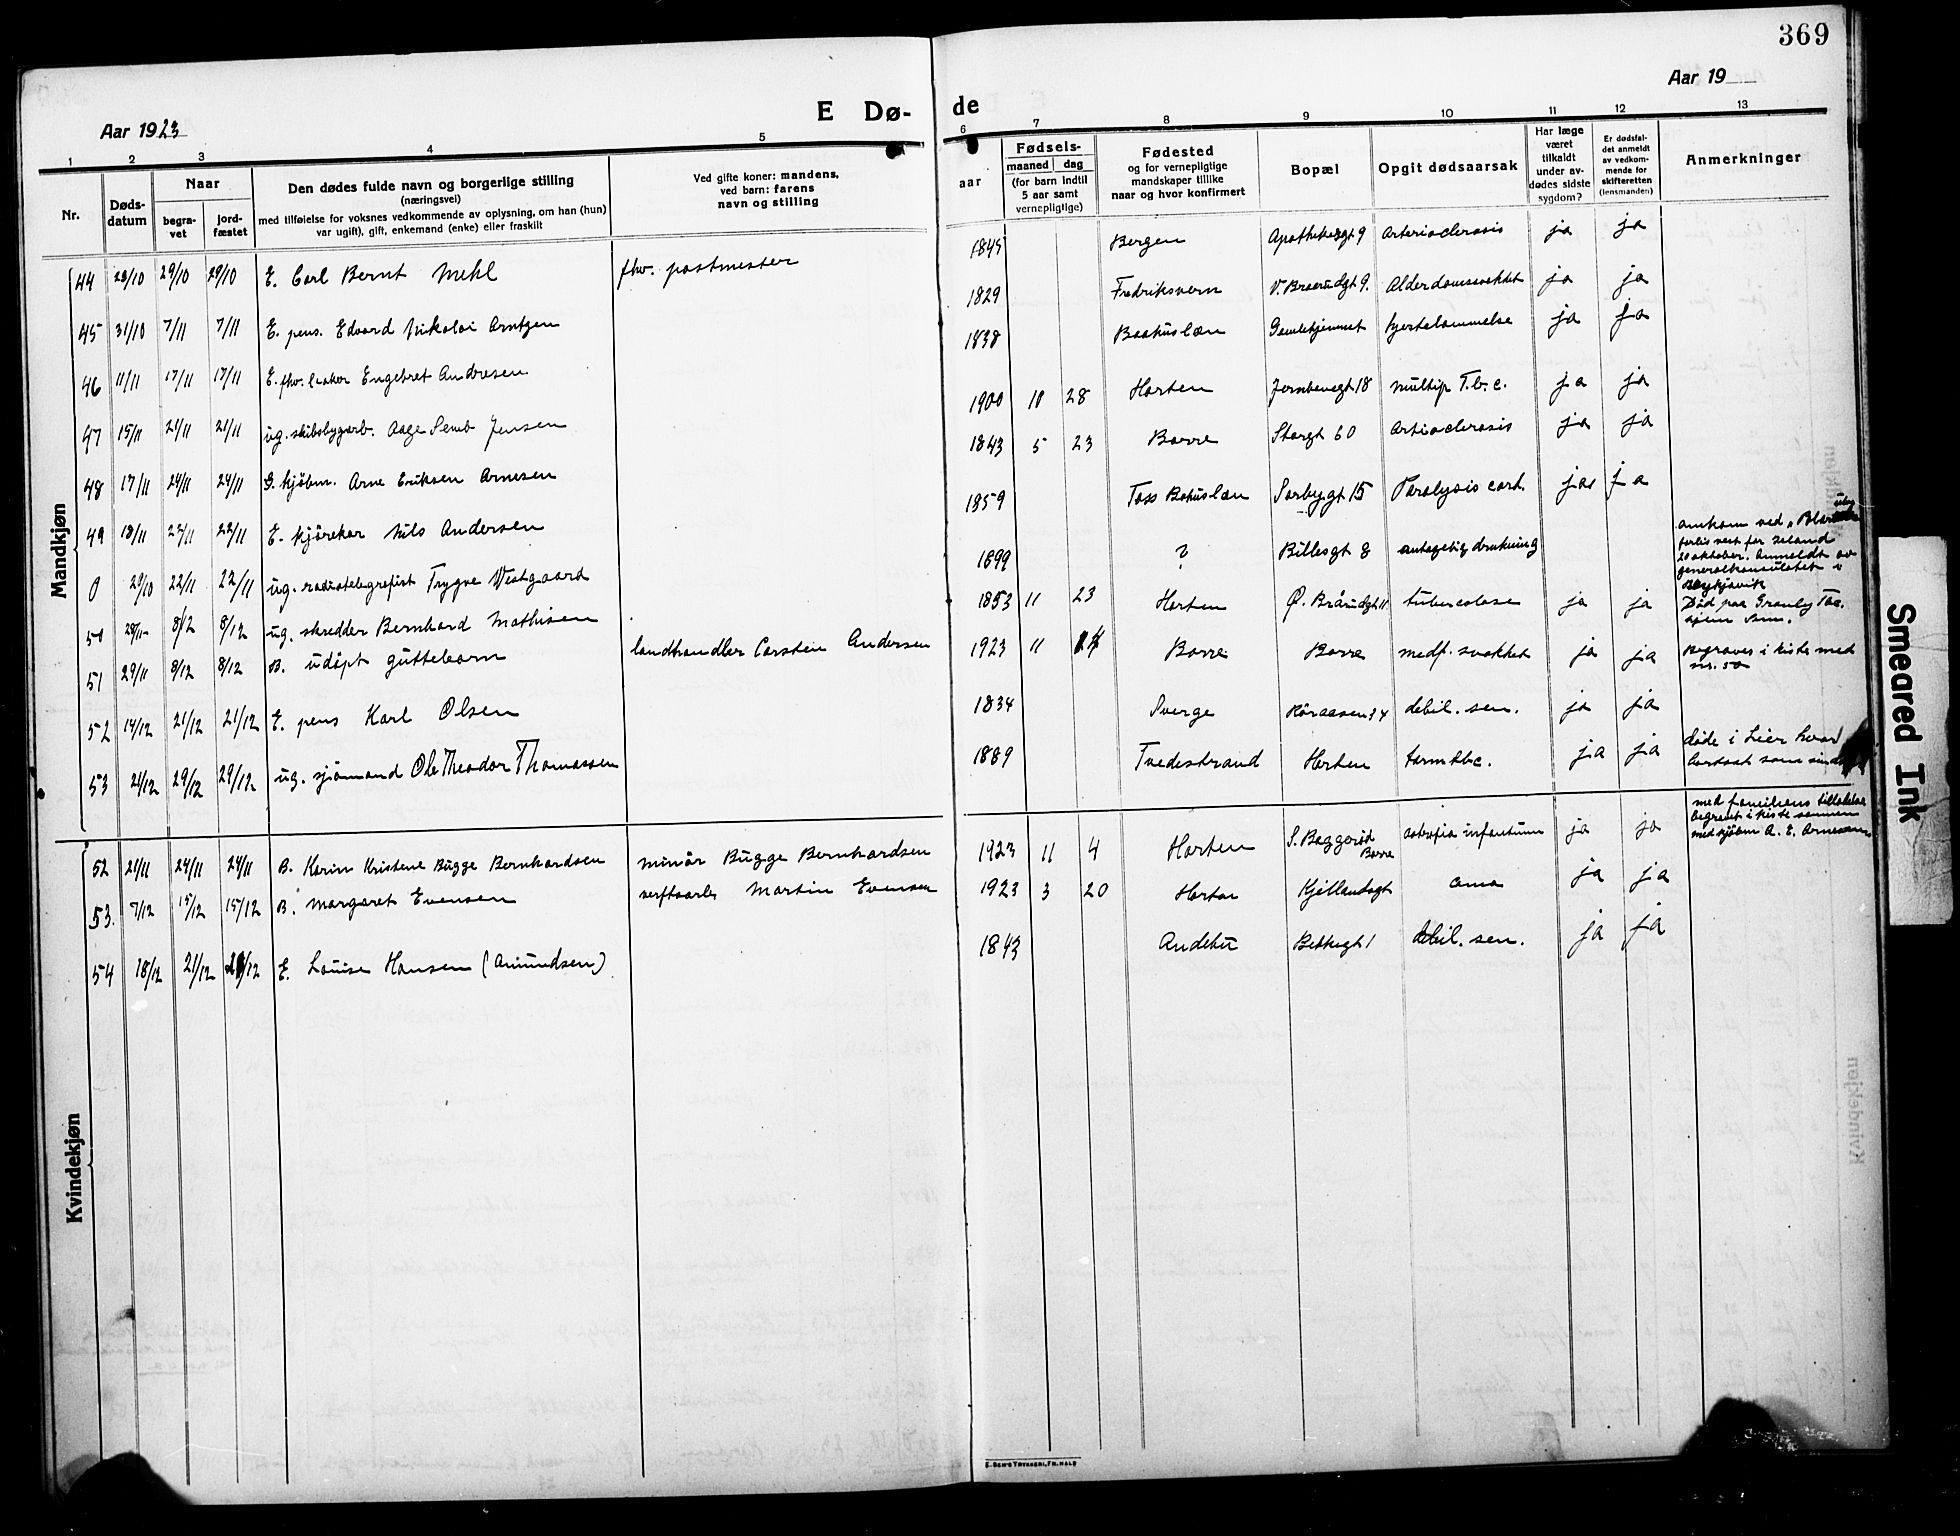 369
Aar 1923
Aar 19
E Dø-
de
1 2 3 4 5
6 7 8 9 10 11 12 13
Nr.
Døds-
datum
Naar
begra-
vet
jord-
fæstet
Den dødes fulde navn og borgerlige stilling
(næringsvei)
med tilføielse for voksnes vedkommende av oplysning, om han (hun)
var ugift), gift, enkemand (enke) eller fraskilt
Ved gifte koner: mandens,
ved barn: farens
navn og stilling
aar
Fødsels-
maaned dag
(for barn indtil
5 aar samt
vernepligtige)
Fødested
og for vernepligtige
mandskaper tillike
naar og hvor konfirmert
Bopæl
Opgit dødsaarsak
Har læge
været
tilkaldt
under av-
dødes sidste
sygdom?
Er dødsfal-
det anmeldt
av vedkom-
mende for
skifteretten
(lensmanden)
Anmerkninger
Mandkjøn
44 23/10 29/10 29/10 E. Carl Bernt Mehl fhv. postmester 1845 Bergen Apothekergt 9 Arteriosclerosis ja ja
45 31/10 7/11 7/11 E. pens. Edvard Nikolai Arntzen 1829 Fredriksvern V. Braarudgt 9. Alderdomssvakhet ja ja
46 11/11 17/11 17/11 E. fhv. Engebret Andresen 1838 Baahuslæn Gamlehjemmet hjertelammelse ja ja
47 15/11 21/11 21/11 ug. skibsbygarb. Aage Semb Jensen 1900 10 28 Horten Jernbanegt 18 multip T.b.c. ja ja
48 17/11 24/11 24/11 G. kjøbm. Arne Eriksen Arnesen 1843 5 23 Borre Storgt 60 Artiosclerosis ja ja
49 18/11 22/11 22/11 E. kjørekar Nils Andersen 1859 Toss Bohuslæn Sorbygt 15 Paralysis cord. ja ja
0 20/10 22/11 22/11 ug. radiotelegrafist Trygve Vestgaard 1899 ? Billesgt 8 antagelig drukning
omkom ved
forlis vest for Island
20 oktober. Anmeldt av
generalkonsulatet i
Reykjavik
50 28/11 8/12 8/12 ug. skredder Bernhard Mathisen 1853 11 23 Horten Ø. Brårudgt 11 tuberculose ja ja
Død paa Granly
51 29/11 8/12 8/12 B. udøpt guttebarn landhandler Carsten Andersen 1923 11 14 Borre Borre medf. svakhet ja ja
Begraves i kiste med
nr. 50
52 14/12 21/12 21/12 E. pens Karl Olsen 1834 Sverge Røraasen 34 debil. sen. ja ja
53 21/12 29/12 29/12 ug. sjømand Ole Theodor Thomassen 1889 Tvedestrand Horten tarmtbc. ja ja
døde i Lier hvor
bortsat som
Kvindekjøn
52 21/11 24/11 24/11 B. Karin Kristene Bugge Bernhardsen minør Bugge Bernhardsen 1923 11 4 Horten S. Baggerød Borre atrofia infantum ja ja
med familiens tillatelse
begravet i kiste sammen
med kjøbm A. E. Arnesen
53. 7/12 15/12 15/12 B. Margaret Evensen verftsarb. Martin Evensen 1923 3 20 Horten Kjellandsgt ja ja
54 18/12 21/12 21/12 E. Louise Hansen (Amundsen) 1843 Andebu Bekkegt 1 debil. sen. ja ja
Smeared Ink
E. SEM'S TRYKKERI, FR.HALD